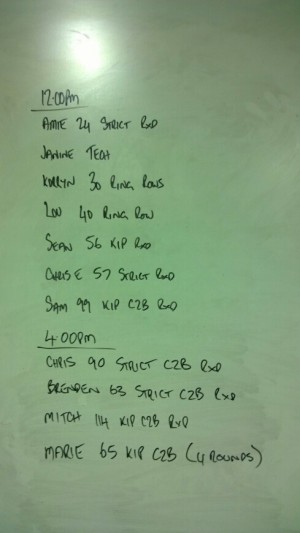 12:00pm
AMIE 24 STRICT RXD
JANINE TECH
KORRYN 30 RING ROWS
LOU 40 RING ROW
SEAN 56 KIP RXD
CHRIS E 57 STRICT RXD
SAM 99 KIP C2B RXD
4:00pm
CHRIS 90 STRICT C2B RXD
BRENDEN 63 STRICT C2B RXD
MITCH 114 KIP C2B RXD
MARIE 65 KIP C2B (4 ROUNDS)